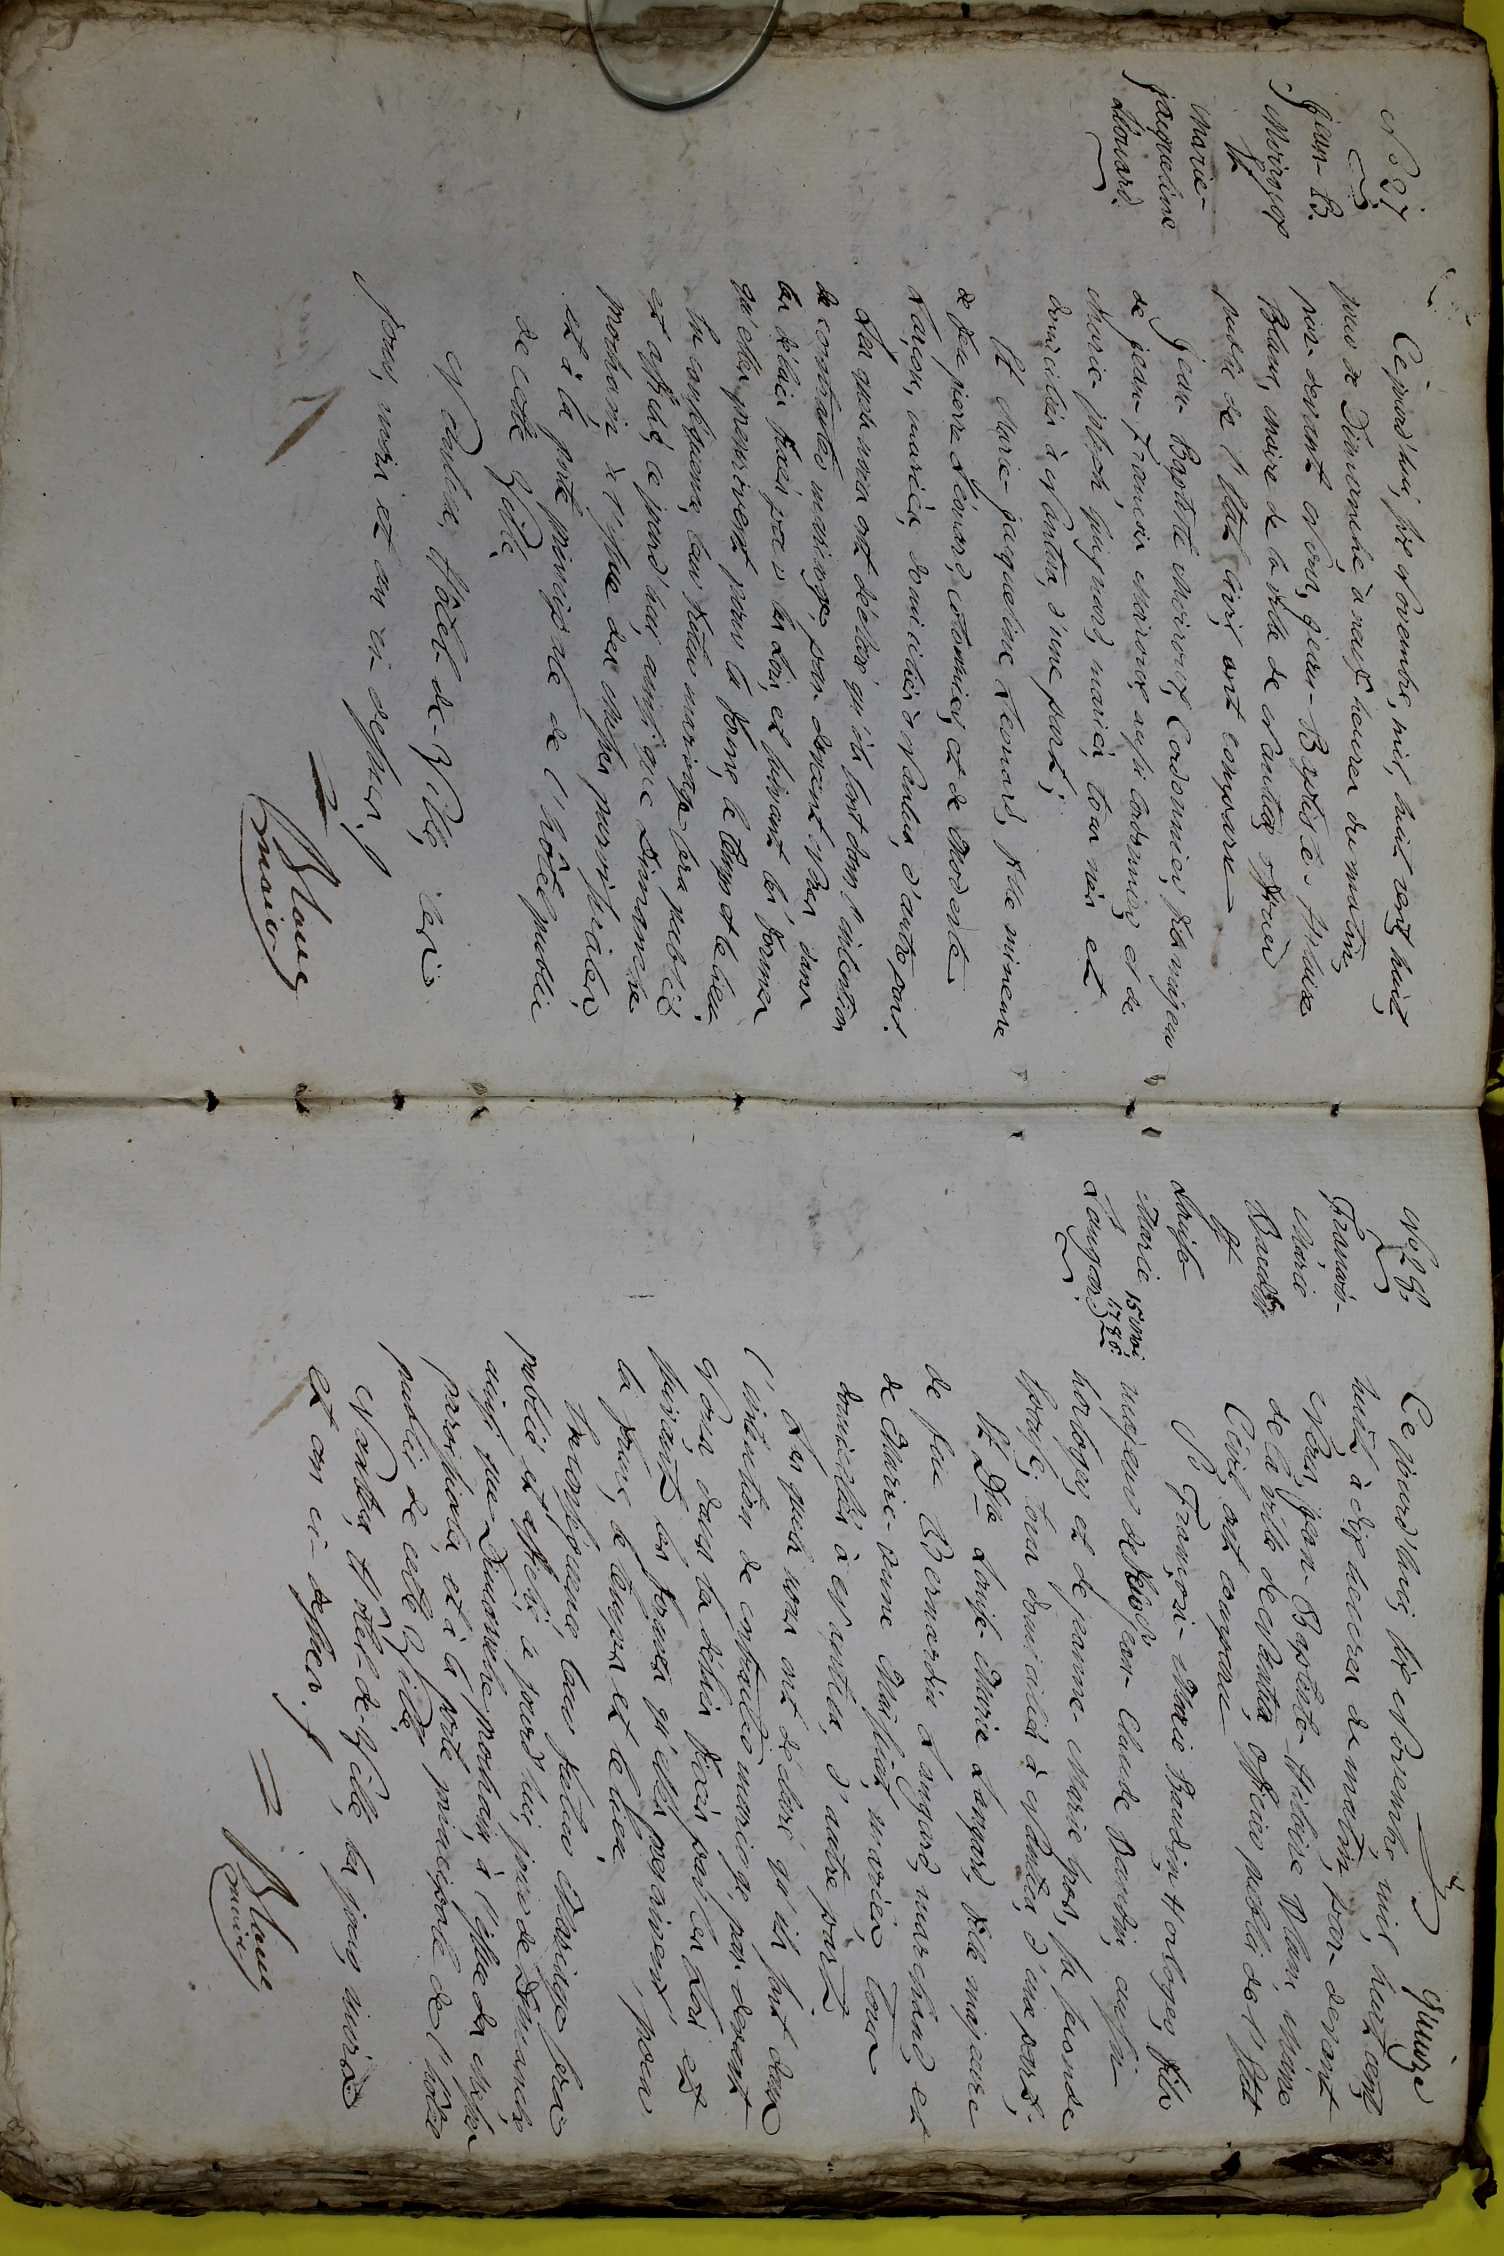 N.º 27.
Jean-B.
Moiroux
Et
Marie-
jacqueline
Léonard.
Ce jourd'hui, six Novembre, mil, huit cent huit,
jour de Dimanche, à neuf heures du matin,
par-devant Nous, jean-Baptiste-
Blanc, maire de la ville de Nantua, officier
public de l'état Civil ont comparu
Jean-Baptiste Moiroux, Cordonnier, fils majeur
de jean-françois Moiroux, aussi cordonnier, et de
Marie guignard, mariés, tous nés et
domiciliés à Nantua, d'une part;
Et Marie-jacqueline Léonard, fille mineure
de feu pierre Léonard, cordonnier, et de Modeste
mariés, domiciliés à Nantua, d'autre part.
Les quels nous ont déclaré qu'ils sont dans l'intention
de contracter mariage, par devant Nous dans
les délais fixés par les Lois, et suivant les formes
qu'elles prescrivent pour la forme, le temps et le lieu
En conséquence, leur futur mariage sera publié,
et affiché, ce jourd'hui ainsi que Dimanche
prochain à l'issue des messes paroissiales,
et à la porte principale de l'hôtel public
de cette Ville,
Nantua, Hôtel-de-Ville, les
jour, mois et an ci-dessus./.
Blanc
maire
quinze
N.º 28.
François-
Marie
Baudin
Et
Louise
Marie
Laugard
15 mai
1786.
Ce jourd'hui, six Novembre, mil, huit cent
huit, à dix heures du matin, par-devant
Nous, jean-Baptiste Blanc, Maire
de la ville de Nantua, officier public de l'état
Civil, ont comparu
S. François-Marie Baudin, Horloger, fils
majeur de jean-Claude Baudin, aussi
horloger, et de jeanne-Marie gros, sa seconde
épouse, tous domiciliés à Nantua, d'une part;
Et Dlle Louise-Marie Laugard, fille majeure
de feu Bernardin Laugard, marchand, et
de Marie-anne mariés, tous
domiciliés à Nantua, d'autre part.
Les quels nous ont déclaré qu'ils sont dans
l'intention de contracter mariage, par devant
Nous dans les délais fixés par les Lois et
suivant les formes qu'elles prescrivent, pour
la forme, le temps et le lieu.
En conséquence, leur futur Mariage sera
publié et affiché, ce jourd'hui, jour de Dimanche
ainsi que Dimanche prochain, à l'issue des messes
paroissiales, et à la porte principale de l'hôtel
public de cette Ville.
Nantua, Hôtel-de-Ville, les jour, mois
et an ci-dessus./.
Blanc
maire